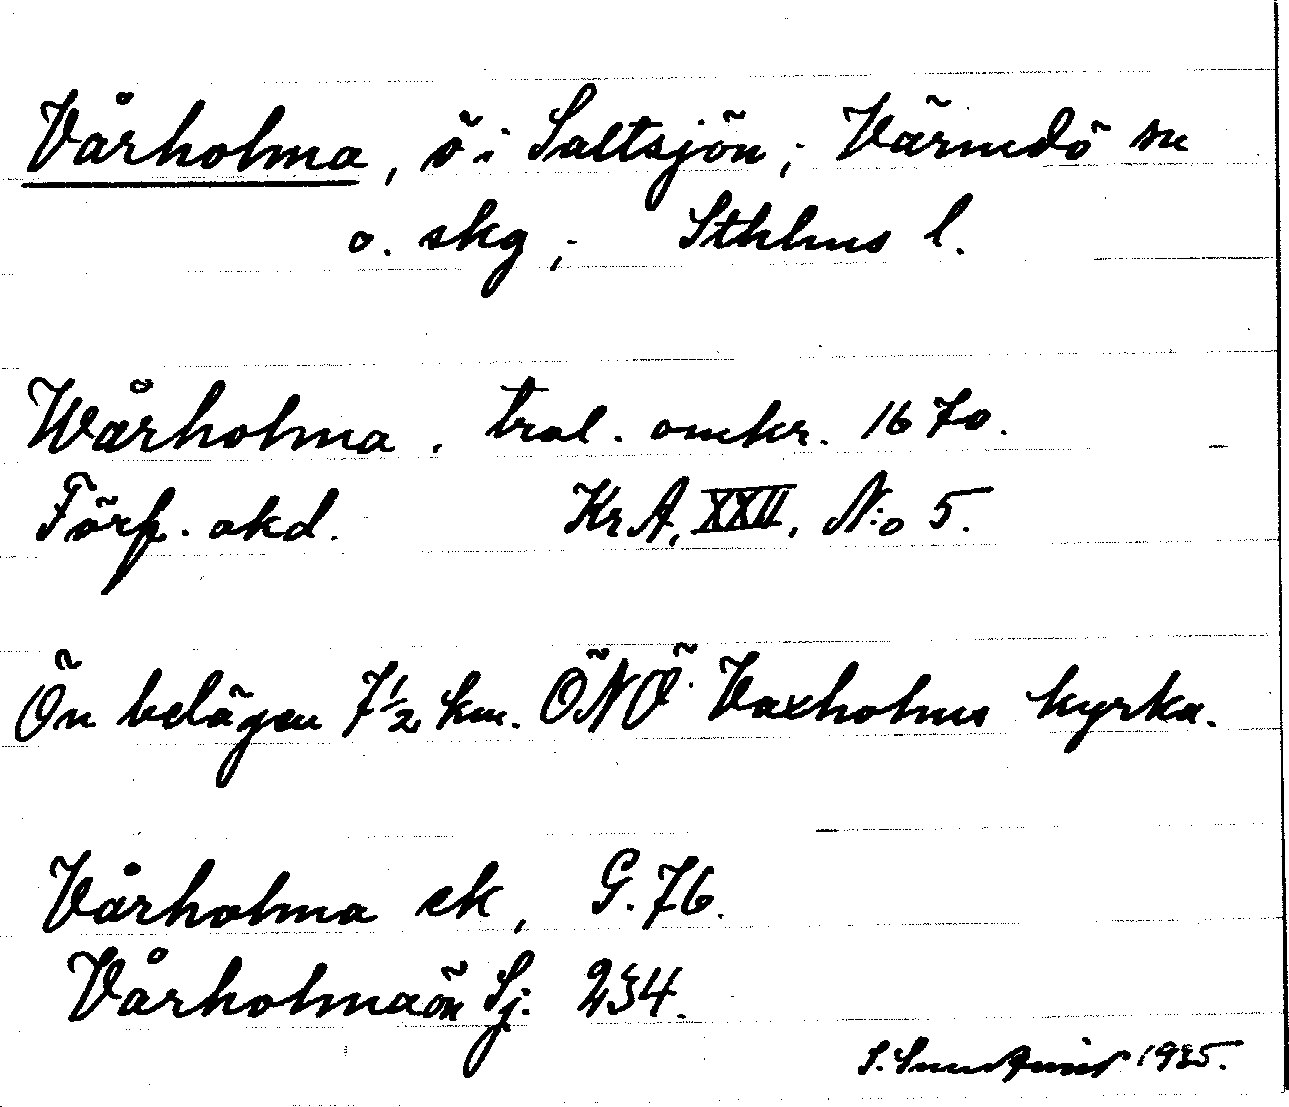 Vårholma, ö i Saltsjön; Värmdö sn
o. skg; Sthlms l.
Wårholma. tral. omkr. 1670.
Förf. okd. KrA, XXII, N:o 5.
Ön belägen 7 1/2 km. ÖNÖ Vaxholms kyrka.
Vårholma ek, G. 76.
Vårholmaön Sj. 234.
S. 1935.